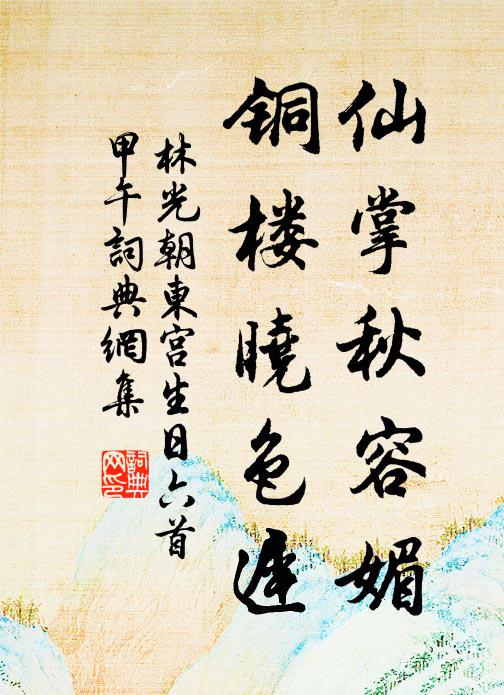 仙掌秋容媚
铜楼曉色遲
林光朝東宫生日六首
甲午詞典網集
詞典网印